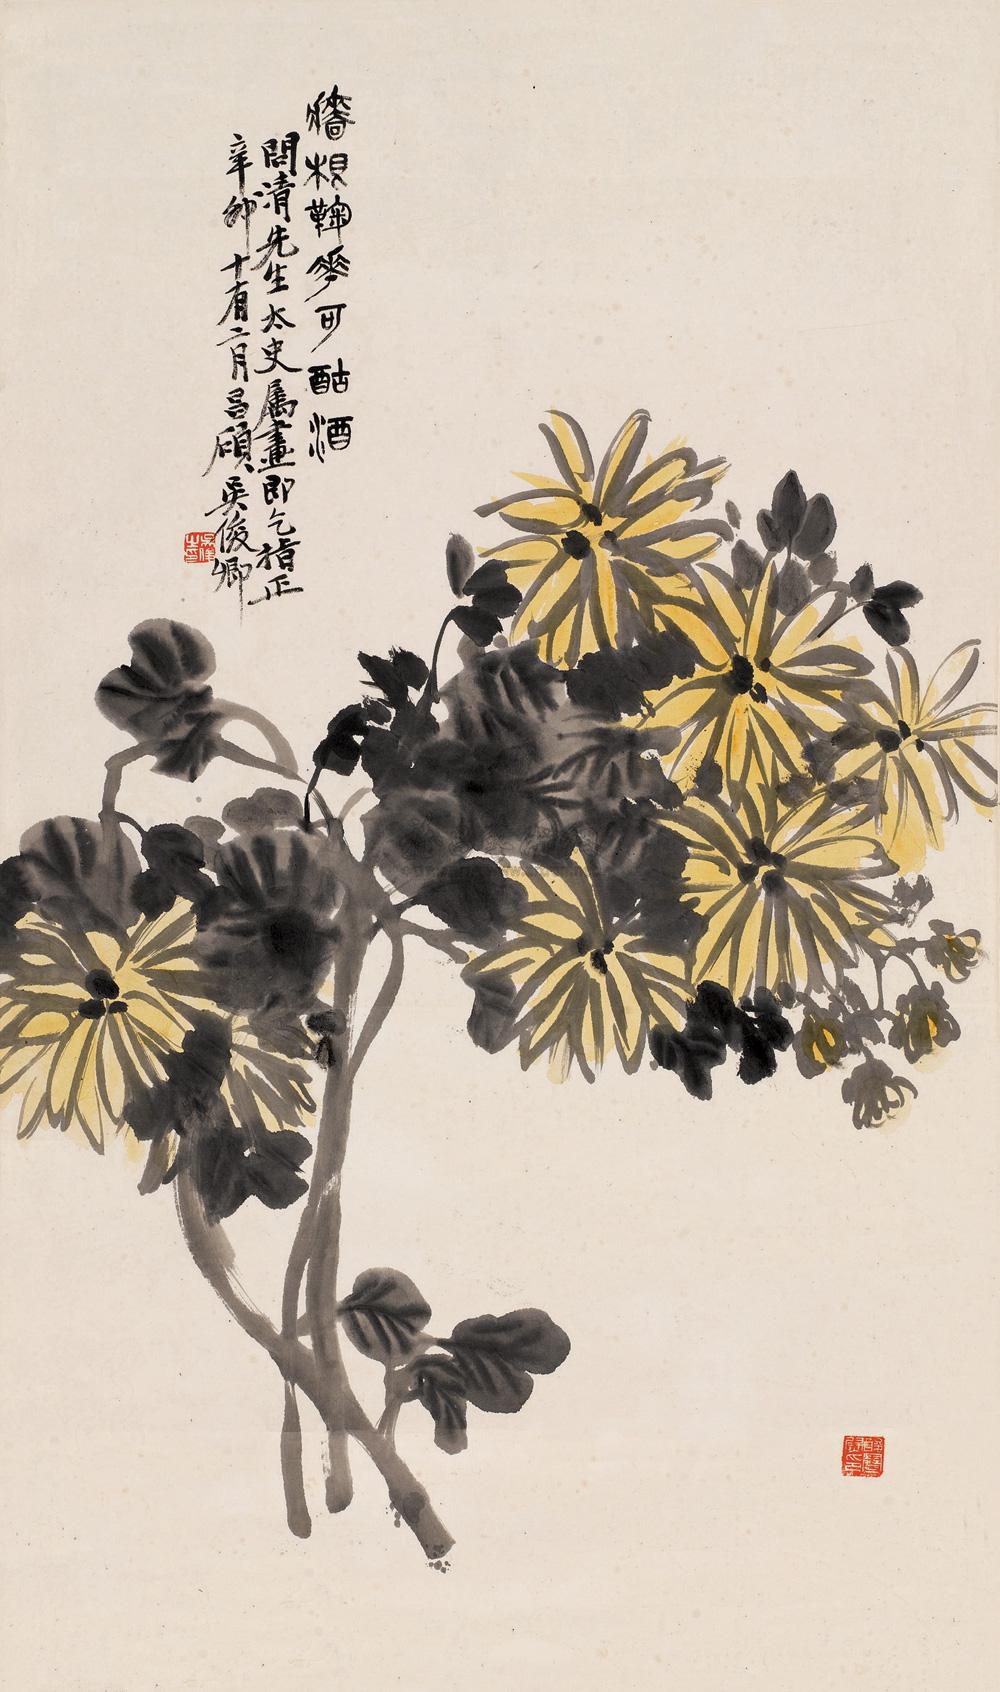 墻根鞠華可酤酒
問清先生太史属畫即乞指正
辛卯十有二月昌碩吳俊卿